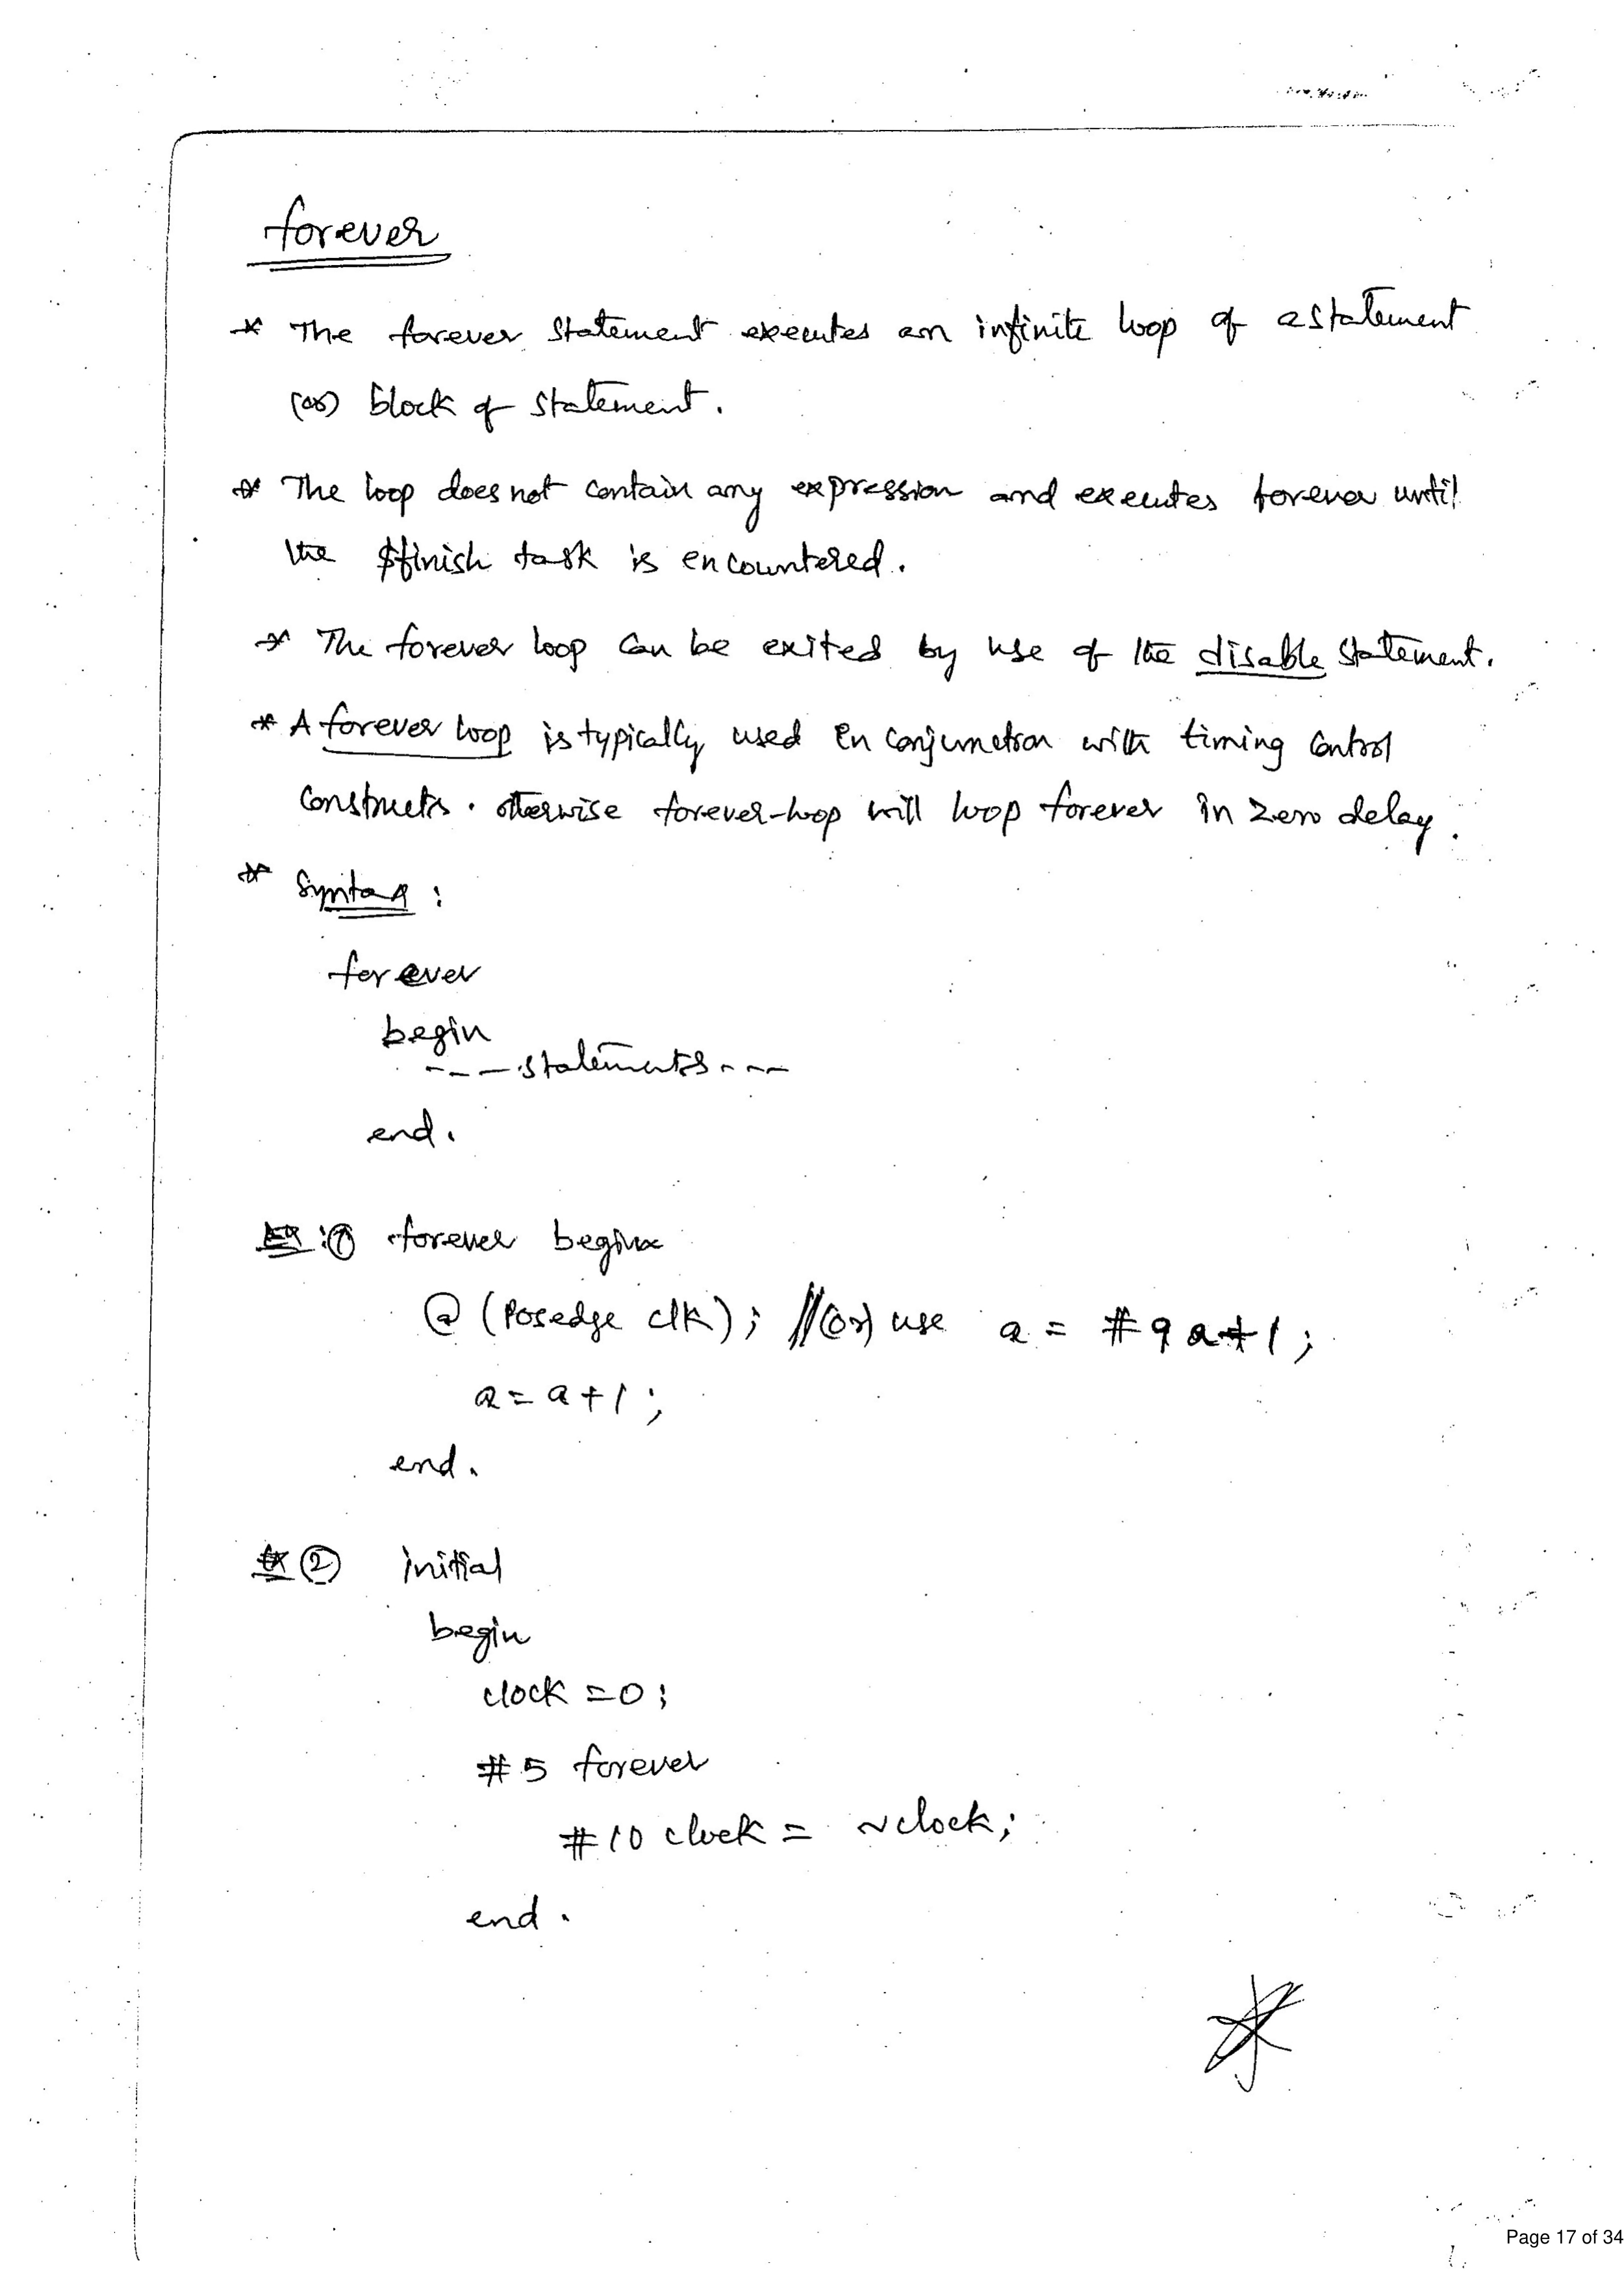 forever
* The forever statement executes an infinite loop of a statement
(or) block of statement.
* The loop does not contain any expression and executes forever until
the $finish task is encountered.
* The forever loop can be exited by use of the disable statement.
* A forever loop is typically used in conjunction with timing control
constructs. otherwise forever-loop will loop forever in zero delay.
* Syntax :
forever
begin
--- statements ---
end.
Ex :① forever begin
@ (posedge clk) ; //(or) use a = #9 a+1 ;
a = a + 1 ;
end.
Ex ② initial
begin
clock = 0 ;
#5 forever
#10 clock = ~clock ;
end.
Page 17 of 34